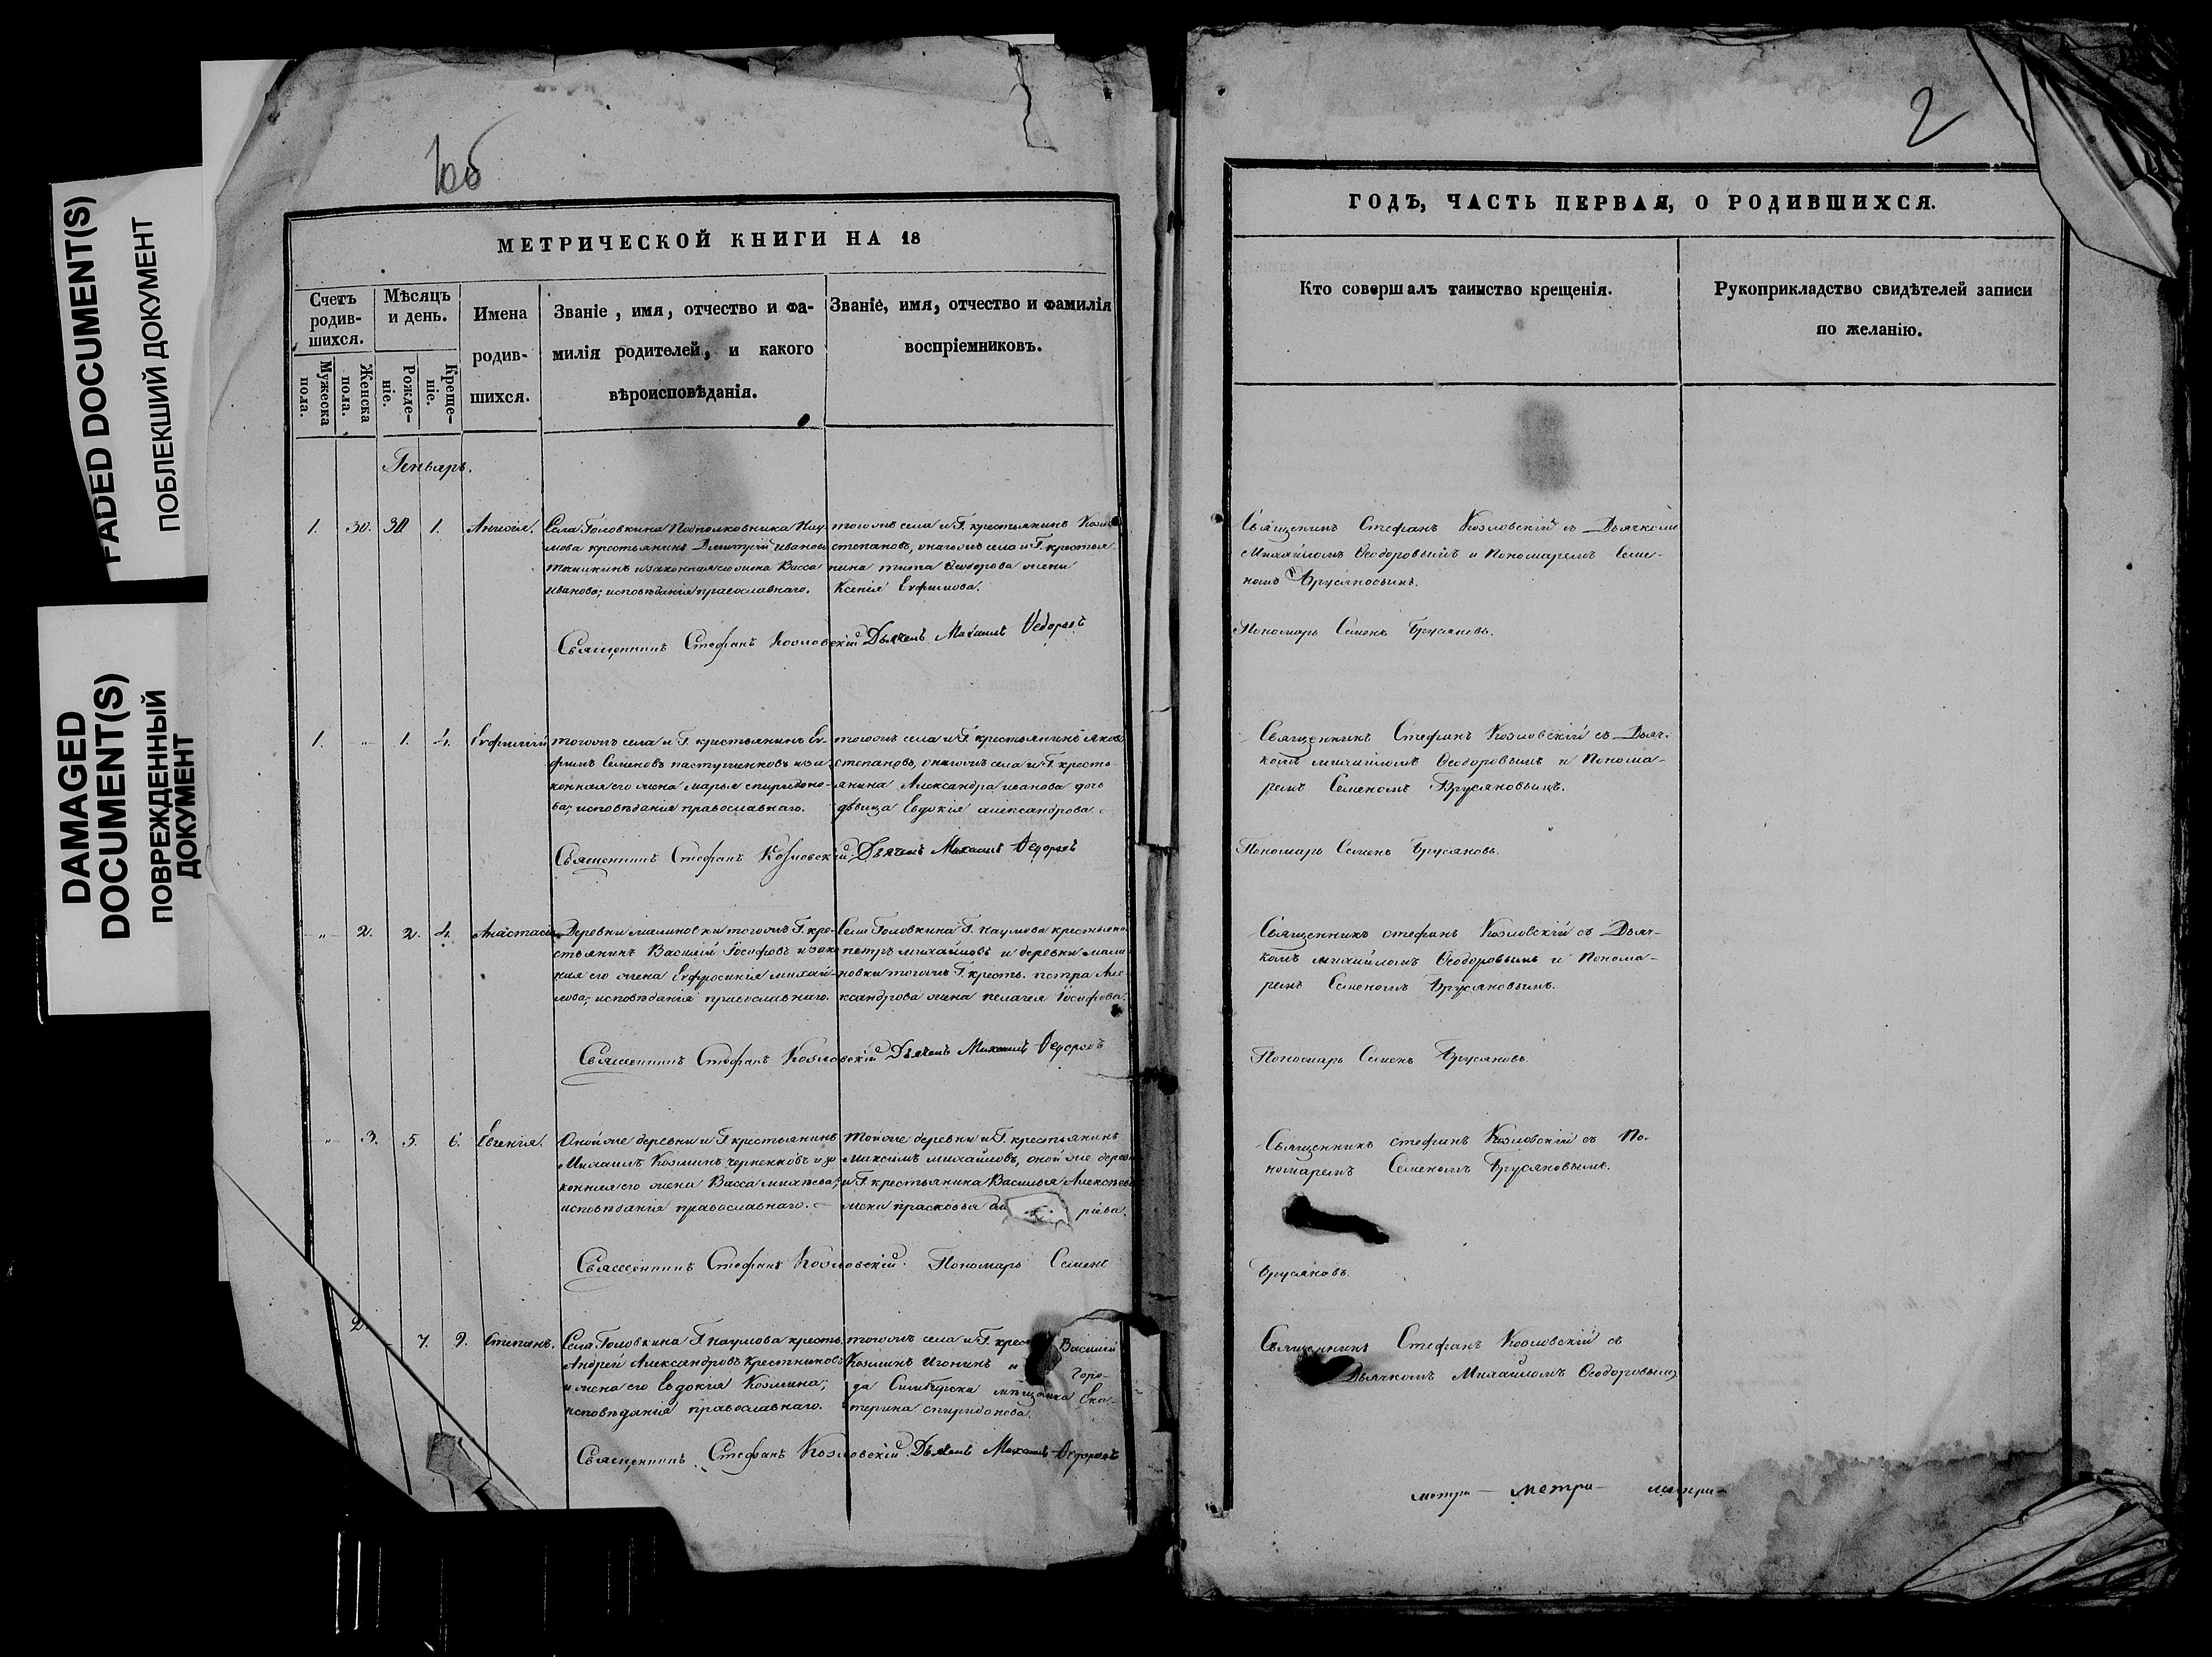 FADED DOCUMENT(S)
ПОБЛЕКШИЙ ДОКУМЕНТ
DAMAGED
DOCUMENT(S)
ПОВРЕЖДЕННЫЙ
ДОКУМЕНТ
1об
МЕТРИЧЕСКОЙ КНИГИ НА 18
Счетъ родив-шихся.
Мужеска пола.
Женска пола.
Мѣсяцъ и день.
Рожде-ніе.
Креще-ніе.
Имена родив-шихся.
Званіе, имя, отчество и фа-
милія родителей, и какого
вѣроисповѣданія.
Званіе, имя, отчество и фамилія
воспріемниковъ.
Генварь.
1. 30. 1.
Села Головкина Подполковника Нау-
мова крестьянинъ Димитрій Ивановъ
и законная его жена Васса
Иванова; исповѣданія православнаго.
тогожъ села и Г. крестьянинъ
степановъ, и тогожъ села и Г. крестья-
нина тита Ѳеодорова жена
Ксенія Евфимова.
Священникъ Стефанъ Козловскій Дьячекъ Михаилъ Ѳедоровъ
1. " 1. 4. Евфимій
тогожъ села и Г. крестьянинъ Ев-
фимъ Семеновъ пастушенковъ и за-
конная его жена марья спиридоно-
ва; исповѣданія православнаго.
тогожъ села и Г. крестьянинъ яковъ
степановъ, и тогожъ села и Г. кресть-
янина Александра иванова дочь
дѣвица Евдокія александрова.
Священникъ Стефанъ Козловскій Дьячекъ Михаилъ Ѳедоровъ
" 2. 2. 4. Анастасія
Деревни малиновки тогожъ Г. кре-
стьянинъ Василій Іосифовъ и закон-
ная его жена Евфросинія михай-
лова; исповѣданія православнаго.
Села Головкина Г. наумова крестьянинъ
петръ михайловъ и деревни мали-
новки тогожъ Г. кресть. петра Але-
ксандрова жена пелагея Іосифова.
Священникъ Стефанъ Козловскій Дьячекъ Михаилъ Ѳедоровъ
" 3. 5. 6. Евгенія.
Оной же деревни и Г. крестьянинъ
Михаилъ Козминъ черненковъ и за-
конная его жена Васса михѣева;
исповѣданія православнаго.
Той же деревни и Г. крестьянинъ
Максимъ михайловъ, оной же дерев
и Г. крестьянина Василья Алексѣева
жена прасковья
Священникъ Стефанъ Козловскій. Пономарь Семенъ
2. 7. 9. Степанъ.
Села Головкина Г. наумова кресть.
Андрей Александровъ крестниковъ
и жена его Евдокія Козмина;
исповѣданія православнаго.
тогожъ села и Г. крест Василій
Козминъ Игонинъ и горо-
да Симбирска мѣщанка Ека-
терина спиридонова.
Священникъ Стефанъ Козловскій Дьячекъ Михаилъ Ѳедоровъ
2
ГОДЪ, ЧАСТЬ ПЕРВАЯ, О РОДИВШИХСЯ.
Кто совершалъ таинство крещенія.
Рукоприкладство свидѣтелей записи
по желанію.
Священникъ Стефанъ Козловскій съ Дьячкомъ
Михайломъ Ѳеодоровымъ и Пономаремъ Семе-
номъ Брусяновымъ.
Пономарь Семенъ Брусяновъ.
Священникъ Стефанъ Козловскій съ Дьяч-
комъ михайломъ Ѳеодоровымъ и Понома-
ремъ Семеномъ Брусяновымъ.
Пономарь Семенъ Брусяновъ.
Священникъ стефанъ Козловскій съ Дьяч-
комъ михайломъ Ѳеодоровымъ и Понома-
ремъ Семеномъ Брусяновымъ.
Пономарь Семенъ Брусяновъ.
Священникъ стефанъ Козловскій съ По-
номаремъ Семеномъ Брусяновымъ.
Брусяновъ.
Священникъ Стефанъ Козловскій съ
Дьячкомъ Михайломъ Ѳеодоровымъ
метри- метри- метри-